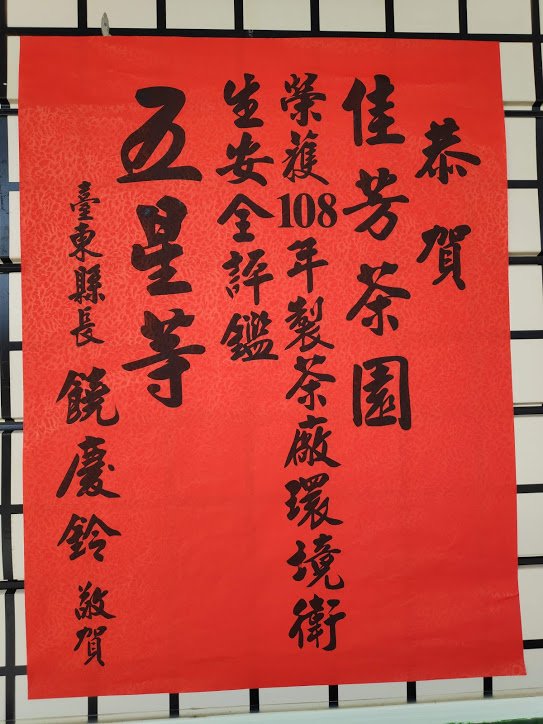 恭賀
佳芳茶園
榮獲108年製茶廠環境衛
生安全評鑑
五星等
臺東縣長 饒慶鈴 敬賀